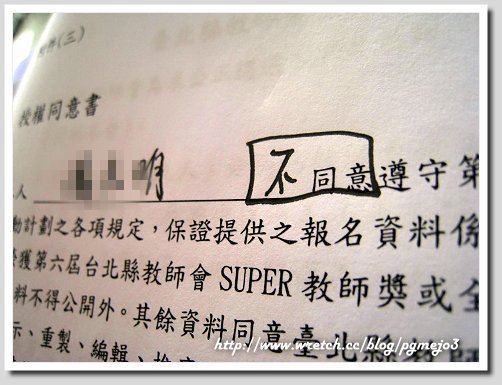 附件(三)
授權同意書
人 明 不同意遵守第
動計劃之各項規定，保證提供之報名資料係
獲第六屆台北縣教師會 SUPER 教師獎或全
料不得公開外。其餘資料同意臺北縣教師
示、重製、編輯、
http://www.wretch.cc/blog/pgmejo3